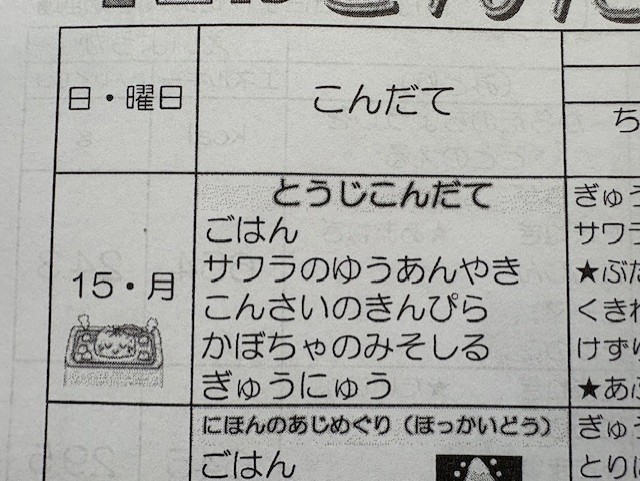 日・曜日
こんだて
ち
15・月
とうじこんだて
ごはん
サワラのゆうあんやき
こんさいのきんぴら
かぼちゃのみそしる
ぎゅうにゅう
ぎゅう
サワラ
★ぶた
くきわ
けずり
★あぶ
にほんのあじめぐり（ほっかいどう）
ごはん
ぎゅう
とりに